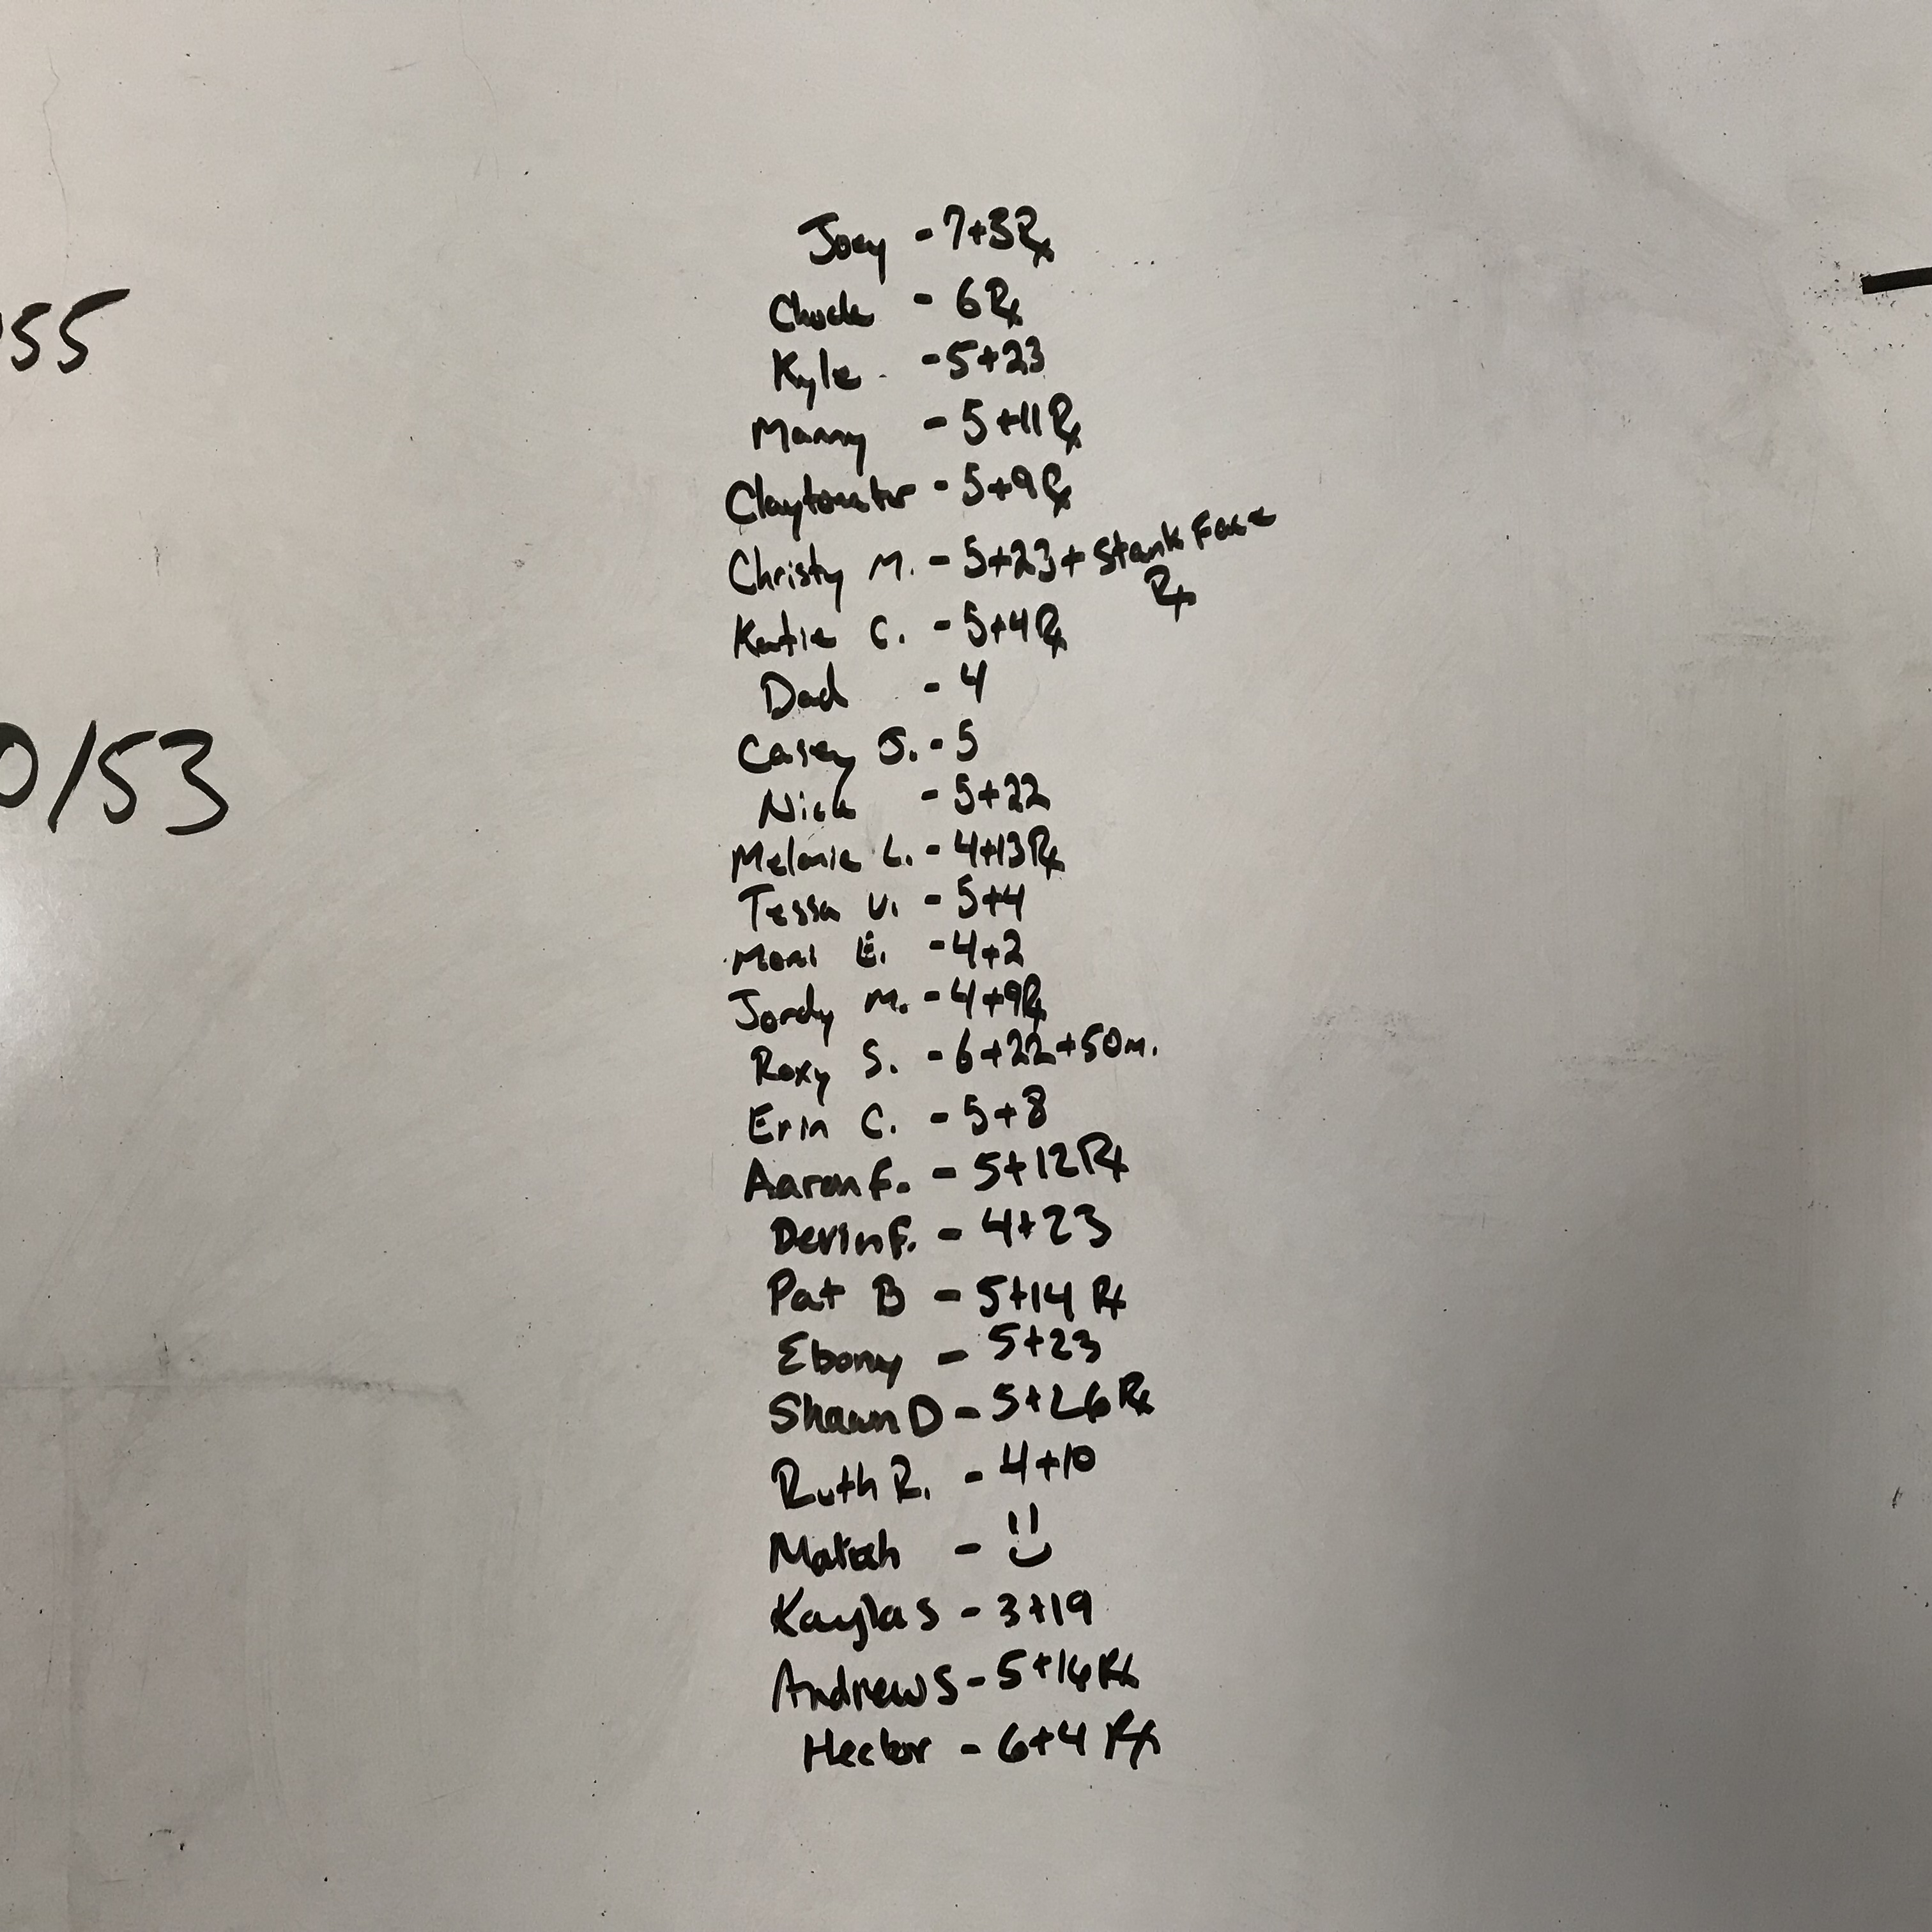 Joey - 7+3Rx
Chuck - 6Rx
Kyle - 5+23
Manny - 5+11Rx
- 5+9Rx
Christy M. - 5+23+ Stank Face
Rx
Katie C. - 5+4Rx
Dad - 4
Casey J. - 5
Nick - 5+22
Melanie L. - 4+13Rx
Tessa V. - 5+4
E. - 4+2
Jordy M. - 4+9Rx
Roxy S. - 6+22+50m.
Erin C. - 5+8
Aaron F. - 5+12Rx
Devin F. - 4+23
Pat B - 5+14 Rx
Ebony - 5+23
Shawn D - 5+26 Rx
Ruth R. - 4+10
- :)
Kayla S - 3+19
Andrew S - 5+16Rx
Hector - 6+4 Rx
55
0/53